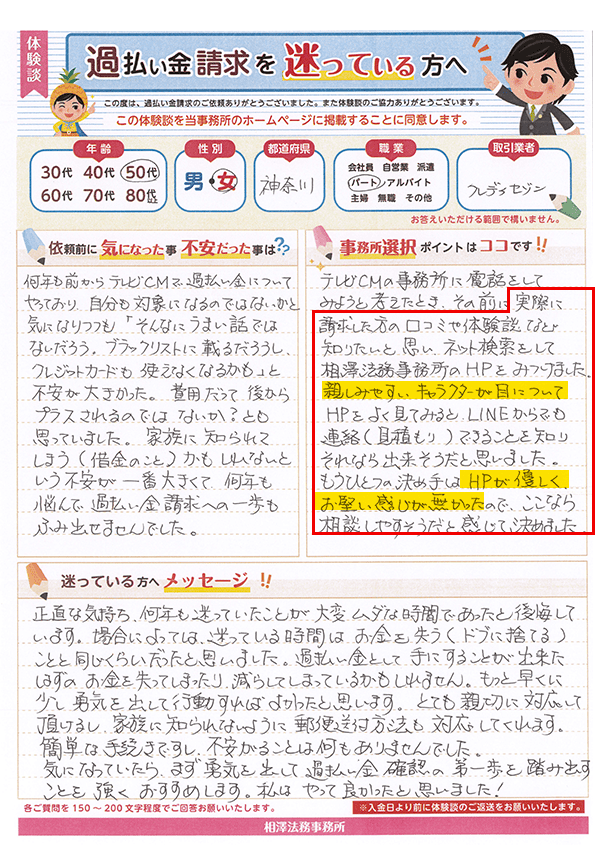 体験談
過払い金請求を迷っている方へ
この度は、過払い金請求のご依頼ありがとうございました。また体験談のご協力ありがとうございます。
この体験談を当事務所のホームページに掲載することに同意します。
年齢
30代 40代 50代
60代 70代 80代以上
性別
男・女
都道府県
神奈川
職業
会社員 自営業 派遣
パート アルバイト
主婦 無職 その他
取引業者
クレディセゾン
お答えいただける範囲で構いません。
依頼前に気になった事 不安だった事は??
何年も前からテレビCMで、過払い金について
やっており、自分も対象になるのではないかと
気になりつつも「そんなにうまい話では
ないだろう。ブラックリストに載るだろうし、
クレジットカードも使えなくなるかも」と
不安が大きかった。費用だって後から
プラスされるのではないか?とも
思っていました。家族に知られて
しまう(借金のこと)かもしれないと
いう不安が一番大きくて、何年も
悩んで、過払い金請求への一歩も
ふみ出せませんでした。
事務所選択ポイントはココです!!
テレビCMの事務所に電話をして
みようと考えたとき、その前に実際に
請求した方の口コミや体験談など
知りたいと思い、ネット検索をして
相澤法務事務所のHPをみつけました。
親しみやすい、キャラクターが目について
HPをよく見てみると、LINEからでも
連絡(見積もり)できることを知り
それなら出来そうだと思いました。
もうひとつの決め手はHPが優しく、
お堅い感じが無かったので、ここなら
相談しやすそうだと感じて、決めました。
迷っている方へメッセージ!!
正直な気持ち、何年も迷っていたことが大変ムダな時間であったと後悔して
います。場合によっては、迷っている時間はお金を失う(ドブに捨てる)
ことと同じくらいだったと思いました。過払い金として手にすることが出来た
はずのお金を失ってしまったり、減らしてしまっているかもしれません。もっと早くに
少し勇気を出して行動すればよかったと思います。とても親切に対応して
頂けるし、家族に知られないように郵便送付方法も対応してくれます。
簡単な手続きですし、不安がることは何もありませんでした。
気になっていたら、まず勇気を出して過払い金確認の第一歩を踏み出す
ことを強くおすすめします。私はやって良かったと思いました!
各ご質問を150〜200文字程度でご回答お願いいたします。
※入金日より前に体験談のご返送をお願いいたします。
相澤法務事務所